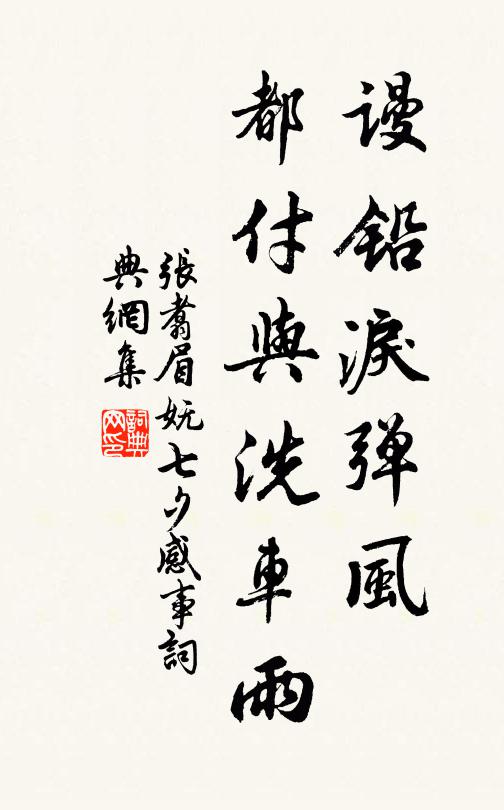 谩鉛淚弹風
都付與洗車雨
張翥眉妩七夕感事詞
典網集
詞典网印